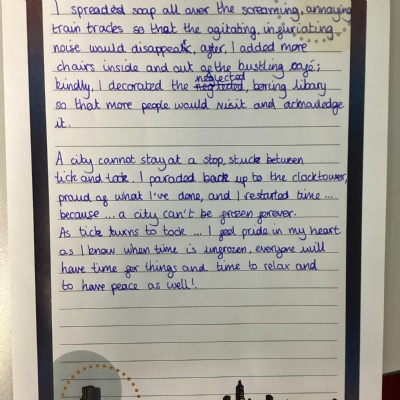 I spreaded soap all over the screaming, annoying
train tracks so that the agitating, infuriating
noise would disappear, after, I added more
chairs inside and out of the bustling café;
neglected
kindly, I decorated the neglected, boring libary
so that more people would visit and acknowledge
it.
A city cannot stay at a stop, stuck between
tick and tock. I paraded back up to the clocktower,
proud of what I've done, and I restarted time ...
because ... a city can't be frozen forever.
As tick turns to tock ... I feel pride in my heart
as I know when time is unfrozen, everyone will
have time for things and time to relax and
to have peace as well!